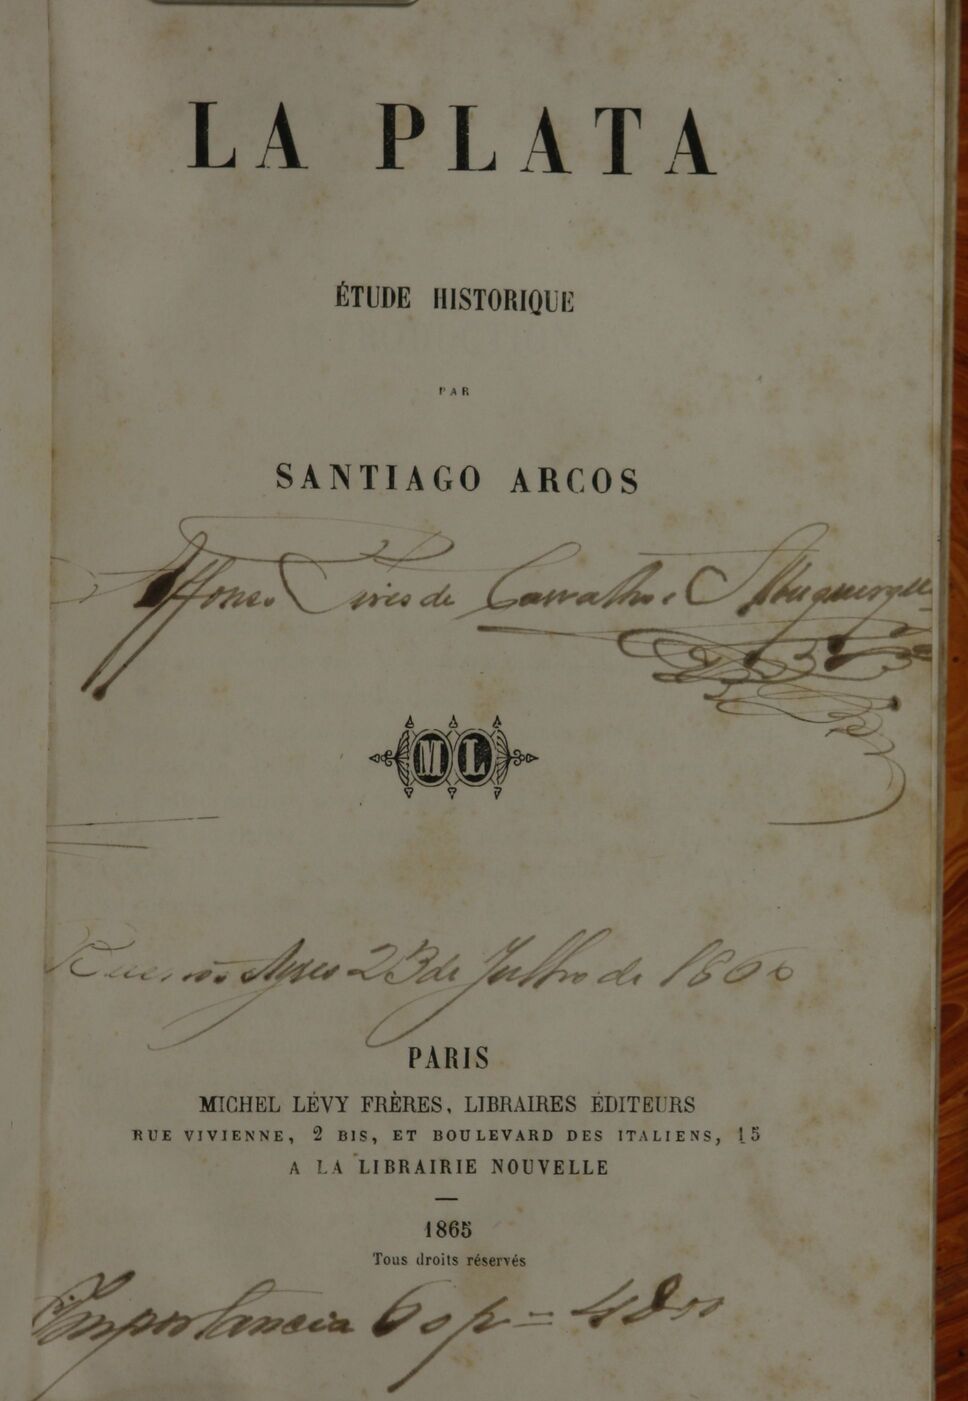 LA PLATA
ÉTUDE HISTORIQUE
PAR
SANTIAGO ARCOS
Affonso Pires de Carvalho e Albuquerque
ML
Buenos Ayres 23 de Julho de 186
PARIS
MICHEL LÉVY FRÈRES, LIBRAIRES ÉDITEURS
RUE VIVIENNE, 2 BIS, ET BOULEVARD DES ITALIENS, 15
A LA LIBRAIRIE NOUVELLE
1865
Tous droits réservés
Importancia 60 p =